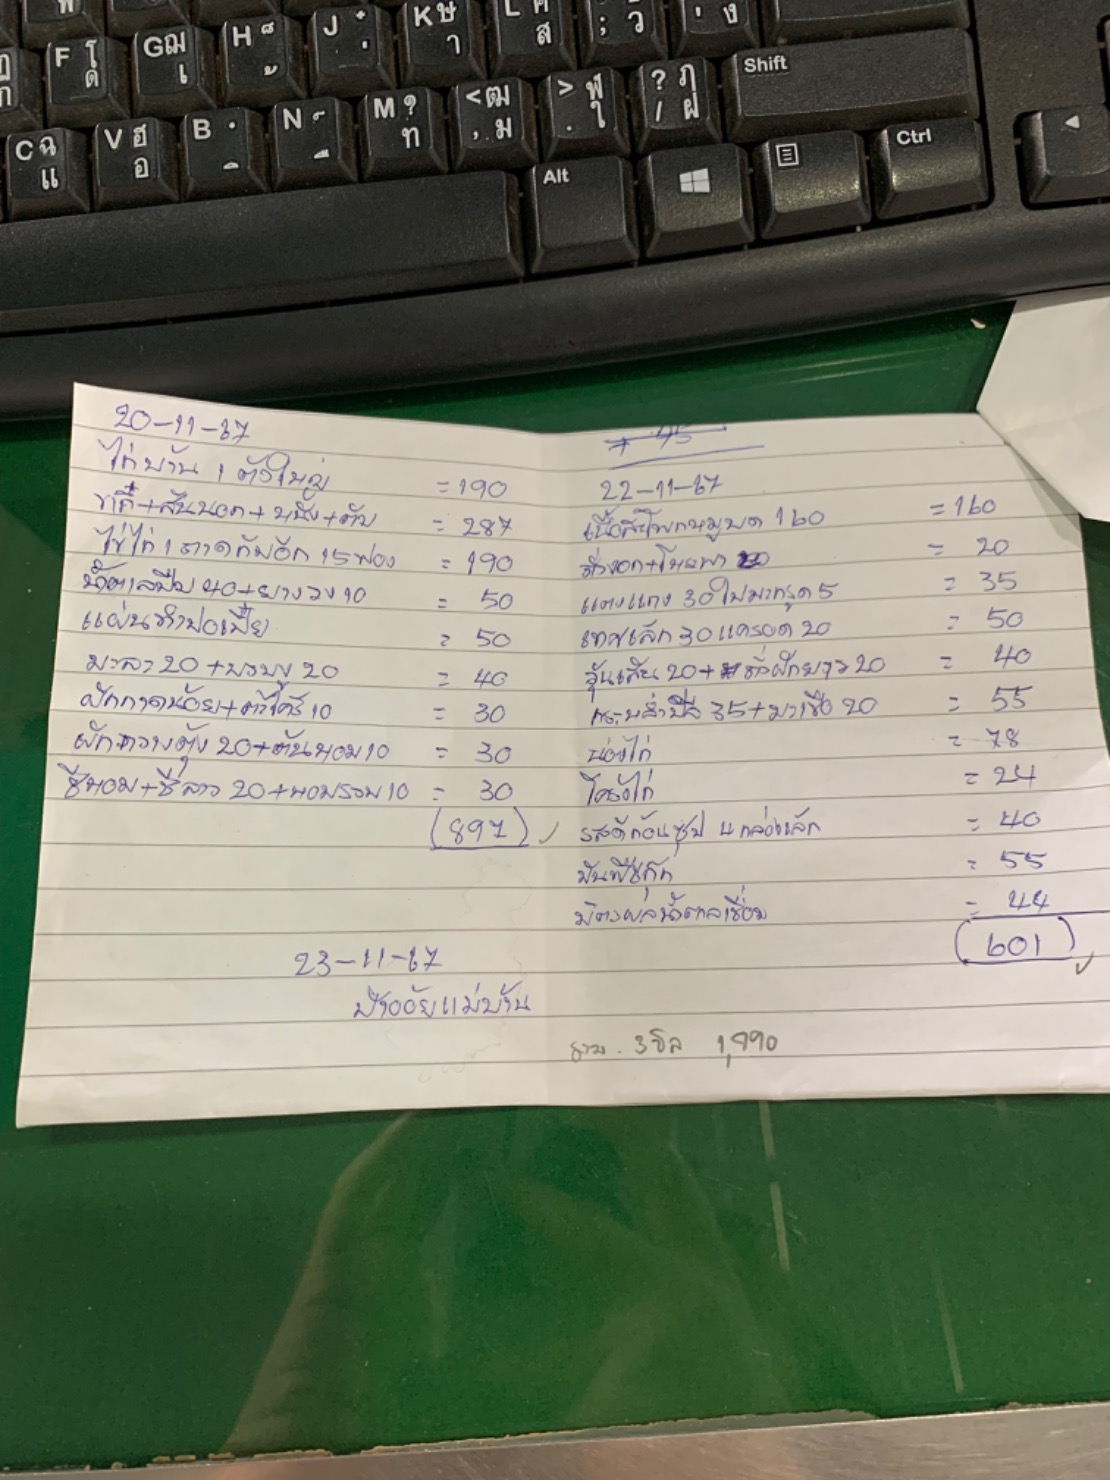 F โ ด
G ฌ เ
H ็ ้
J ๋ ่
K ษ า
L ศ ส
; ซ ว
' . ง
C ฉ แ
V ฮ อ
B ฺ ิ
N ์ ื
M ? ท
< ฒ , ม
> ฬ . ใ
? ฦ / ฝ
Shift
Alt
Ctrl
20-11-67
ไก่บ้าน 1 ตัวใหญ่ =190
ขาคี่+สันนอก+หนัง+ตับ = 287
ไข่ไก่ 1 ถาดกับอีก 15 ฟอง =190
น้ำตาลปี๊บ 40+ยางวง 10 = 50
แผ่นทำปอเปี๊ยะ = 50
มาลา 20 + 20 = 40
ผักกาดน้อย+ตะไคร้ 10 = 30
ผักกวางตุ้ง 20+ต้นหอม 10 = 30
ชีหอม+ชีลาว 20+หอมรวม 10 = 30
(897)
23-11-67
ป้าอ้อยแม่บ้าน
+ 45
22-11-67
เนื้อสะโพกหมูบด 160 =160
ถั่วงอก+โหระพา 20 = 20
แตงแกง 30 ใบมะกรูด 5 = 35
เทศเล็ก 30 แครอด 20 = 50
วุ้นเส้น 20+ถั่วฝักยาว 20 = 40
กะหล่ำปลี 35+มะเขือ 20 = 55
น่องไก่ = 78
โครงไก่ = 24
รสดีก้อนซุป 4 กล่องเล็ก = 40
= 55
มิตรผลน้ำตาลเชื่อม = 44
(601)
รวม. 3 บิล 1,990